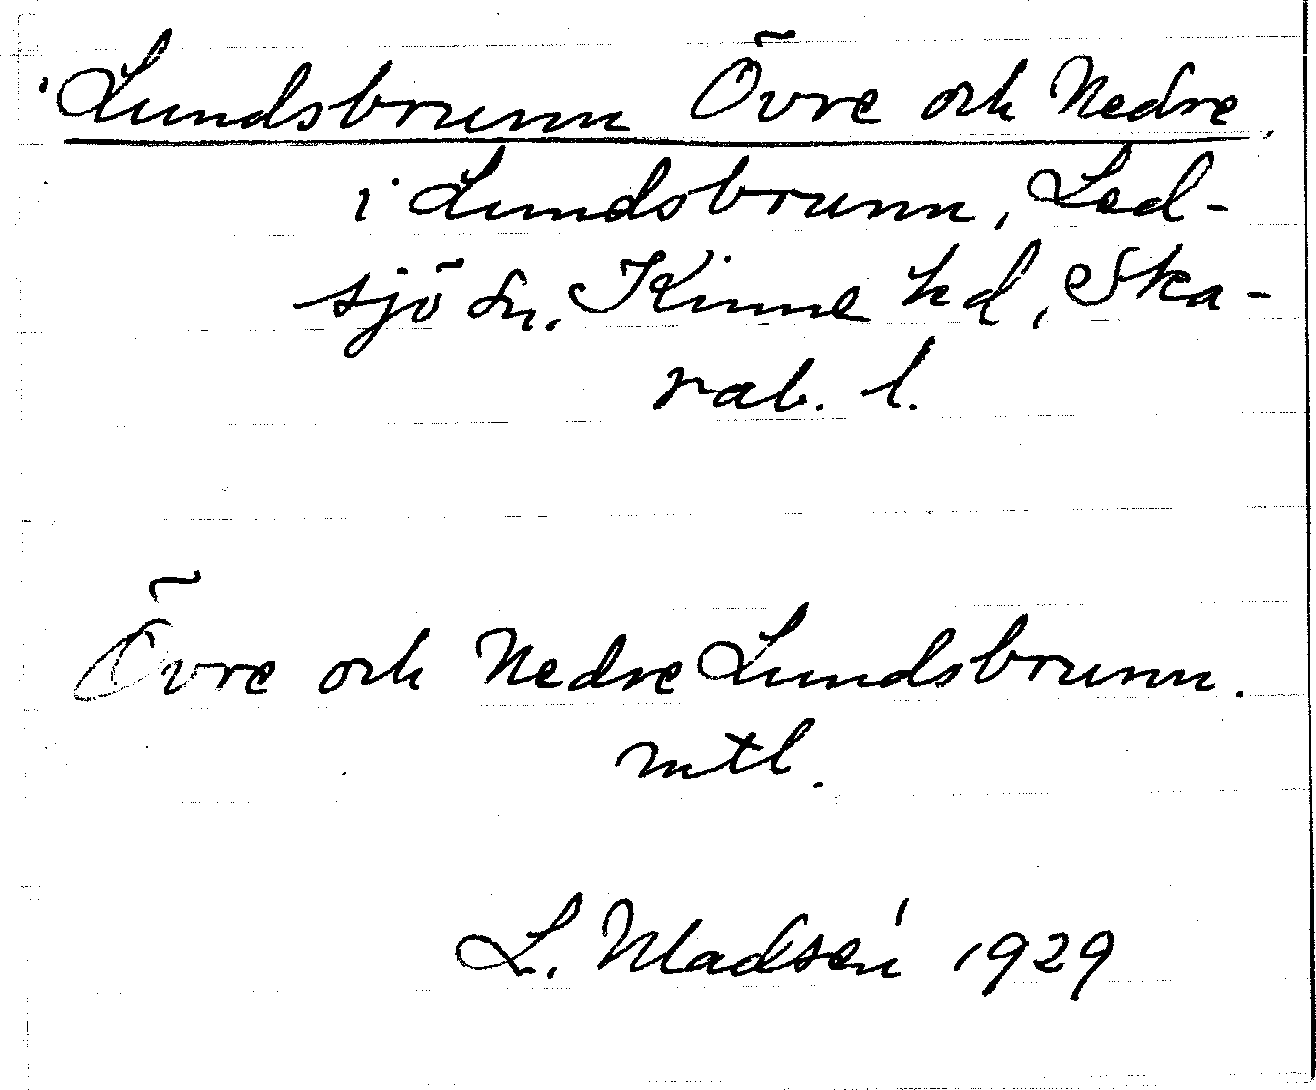 Lundsbrunn Övre och Nedre,
i Lundsbrunn, Led-
sjö sn, Kinne hd, Ska-
rab. l.
Övre och Nedre Lundsbrunn.
mtl.
L. Madsén 1929